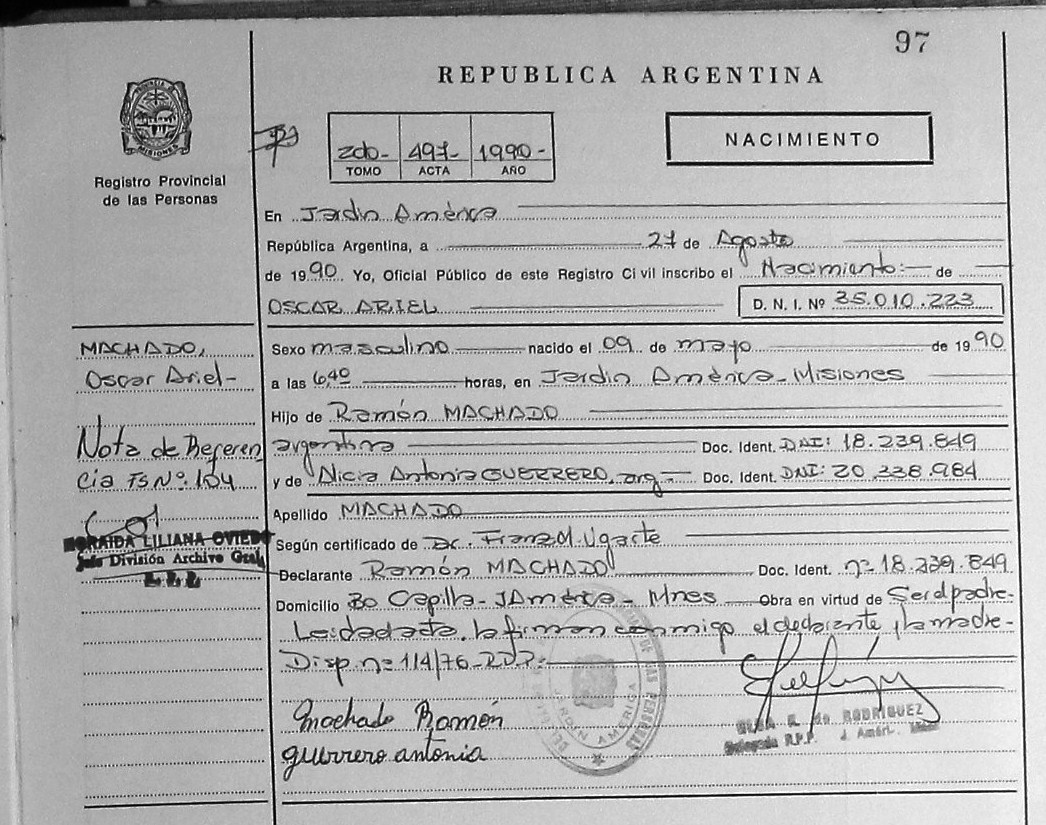 97
REPUBLICA ARGENTINA
PROVINCIA DE MISIONES
Registro Provincial
de las Personas
2do- 497- 1990-
TOMO ACTA AÑO
NACIMIENTO
En Jardín América
República Argentina, a 27 de Agosto
de 1990 Yo, Oficial Público de este Registro Civil inscribo el Nacimiento:- de
OSCAR ARIEL D. N. I. Nº 35.010.223
MACHADO,
Oscar Ariel-
Nota de Referen
cia Nº 104
LILIANA OVIEDO
Jefe División Archivo Gral.
Sexo masculino nacido el 09 de mayo de 1990
a las 6,40 horas, en Jardín América-Misiones
Hijo de Ramón MACHADO
argentina Doc. Ident. DNI: 18.239.849
y de Alicia Antonia GUERRERO, arg- Doc. Ident. DNI: 20.338.984
Apellido MACHADO
Según certificado de Dr. Franz M. Ugarte
Declarante Ramón MACHADO Doc. Ident. nº 18.239.849
Domicilio Bo Capilla-JAmérica-Mnes Obra en virtud de Ser el padre-
Leída el acta, la firman conmigo el declarante y la madre-
Disp. nº 114/76-RPP-
Machado Ramón
guerrero antonia
DE LAS PERSONAS
JARDIN AMERICA
OLGA de RODRIGUEZ
Delegada R.P.P. J. Amér.